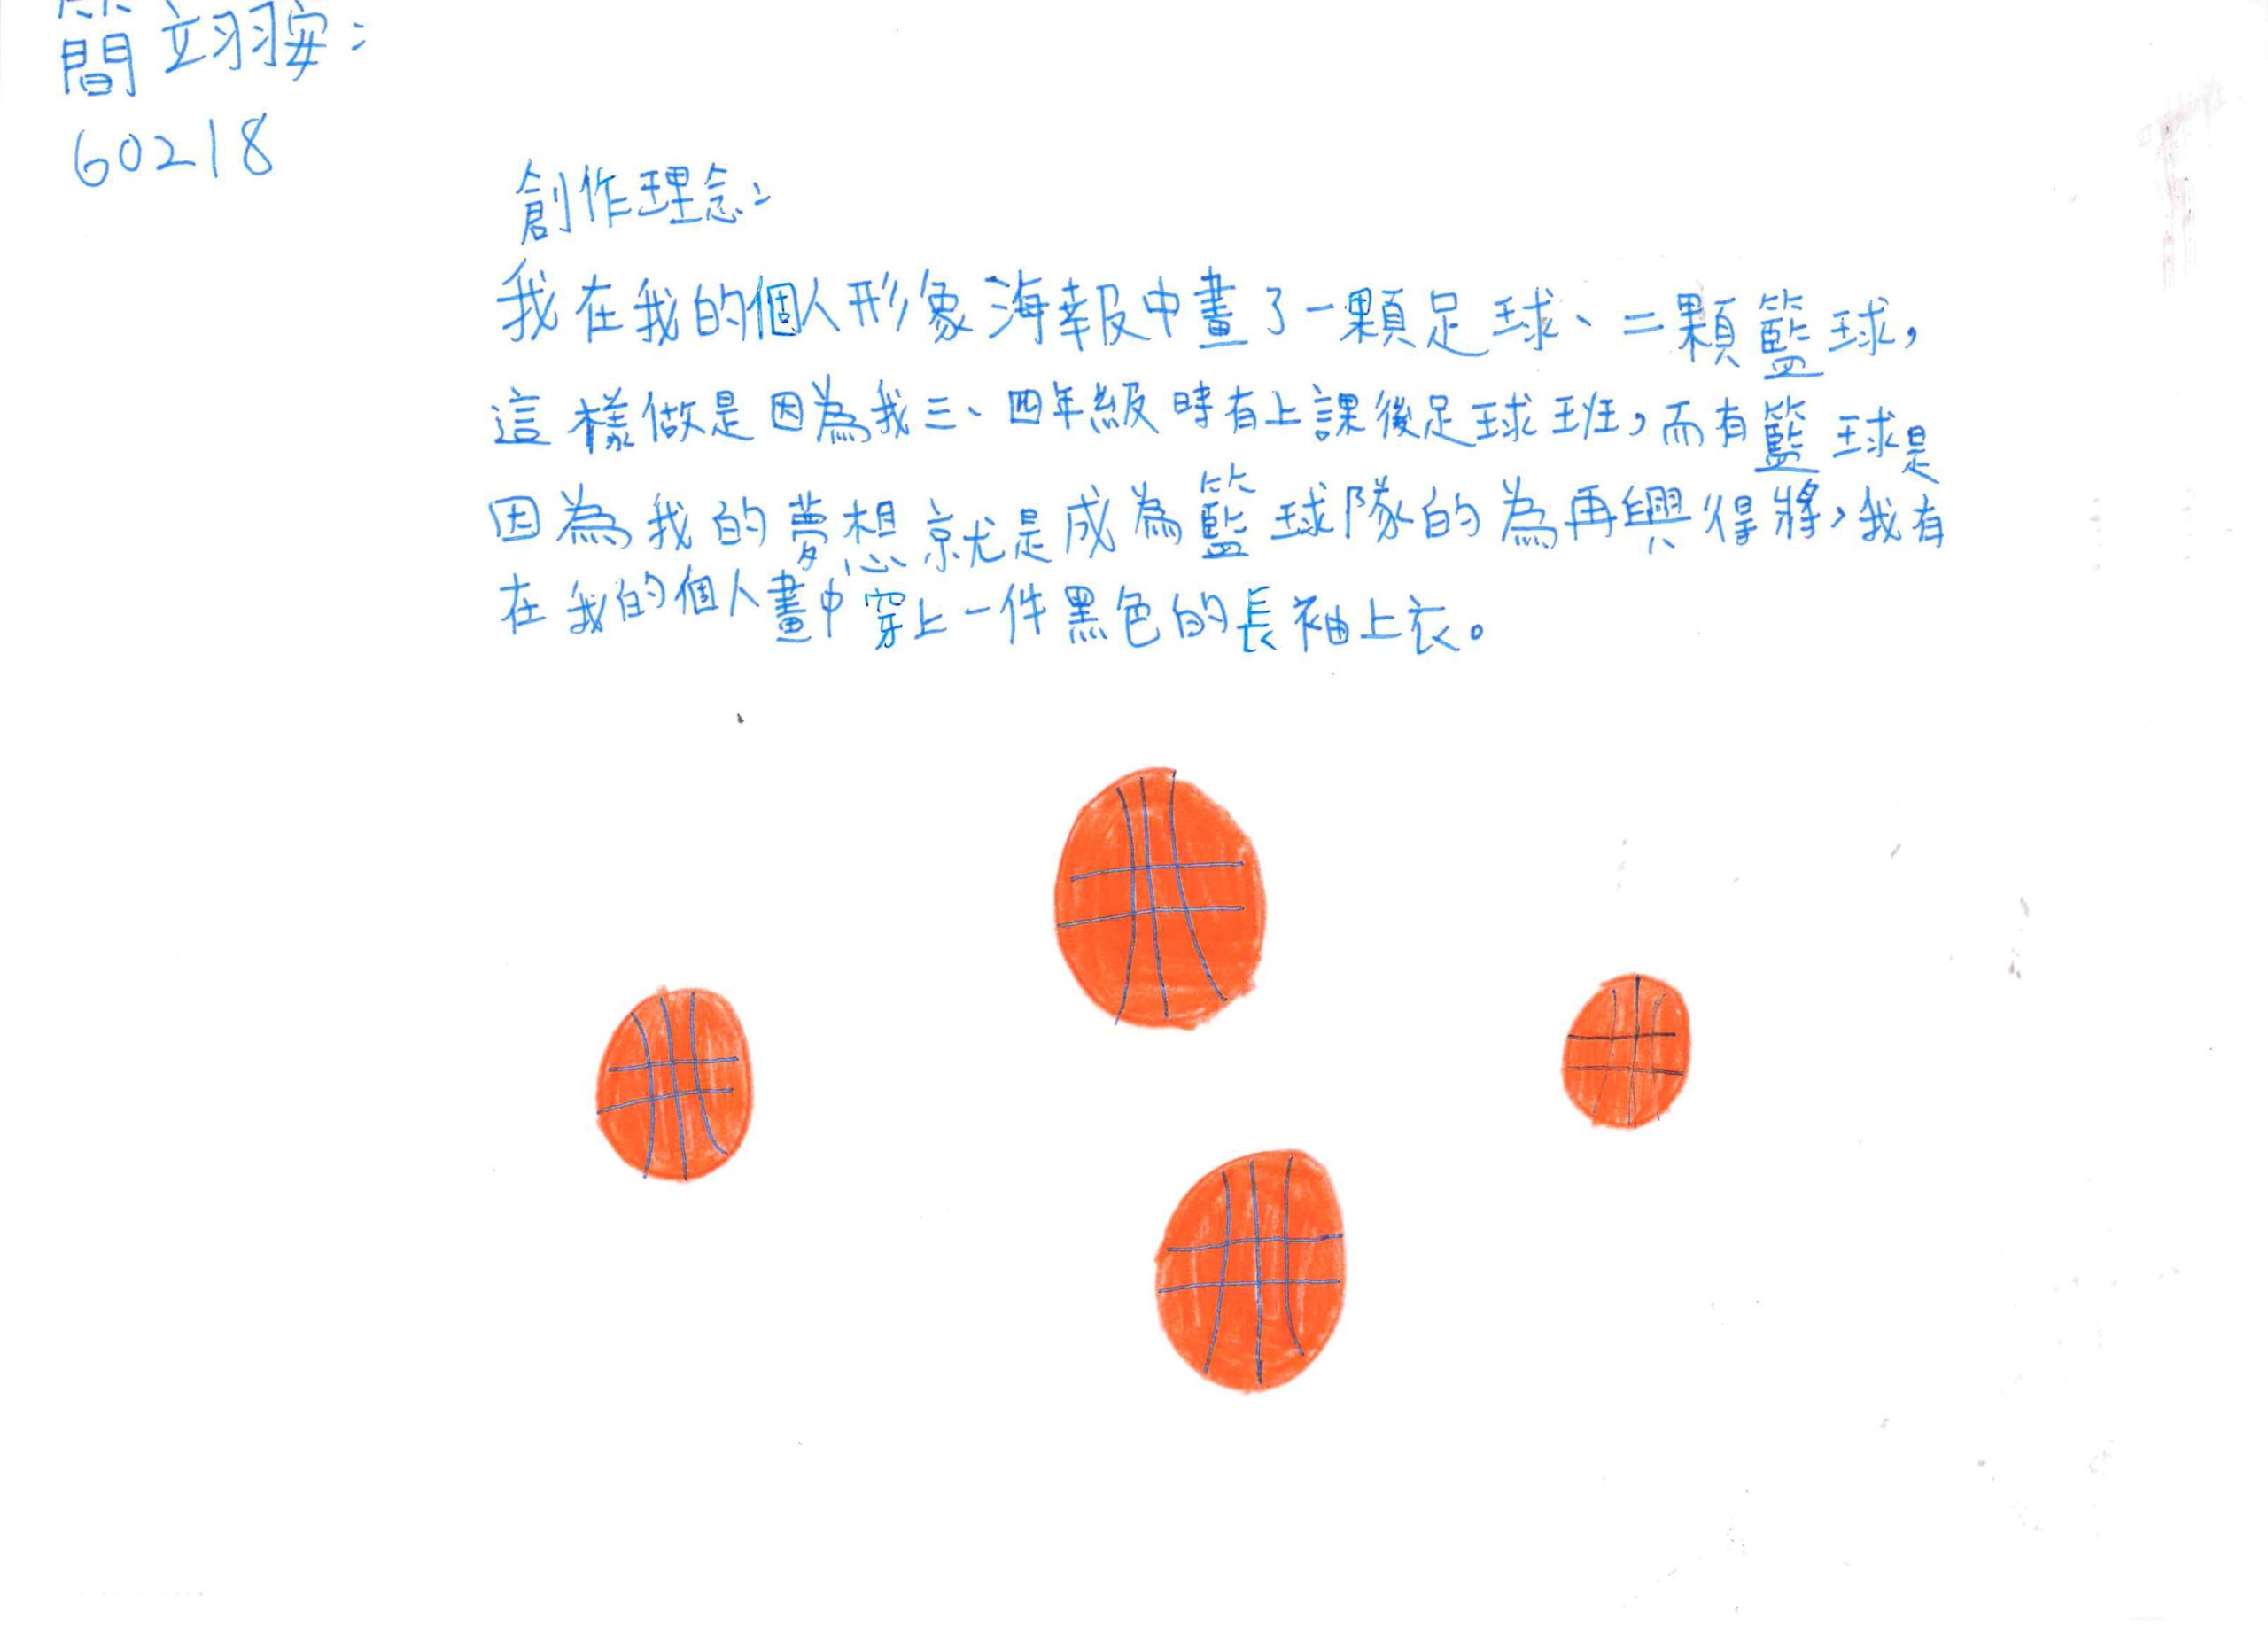 簡翊安：
60218
創作理念：
我在我的個人形象海報中畫了一顆足球、二顆籃球，
這樣做是因為我三、四年級時有上課後足球班，而有籃球是
因為我的夢想就是成為籃球隊的為再興得將，我有
在我的個人畫中穿上一件黑色的長袖上衣。